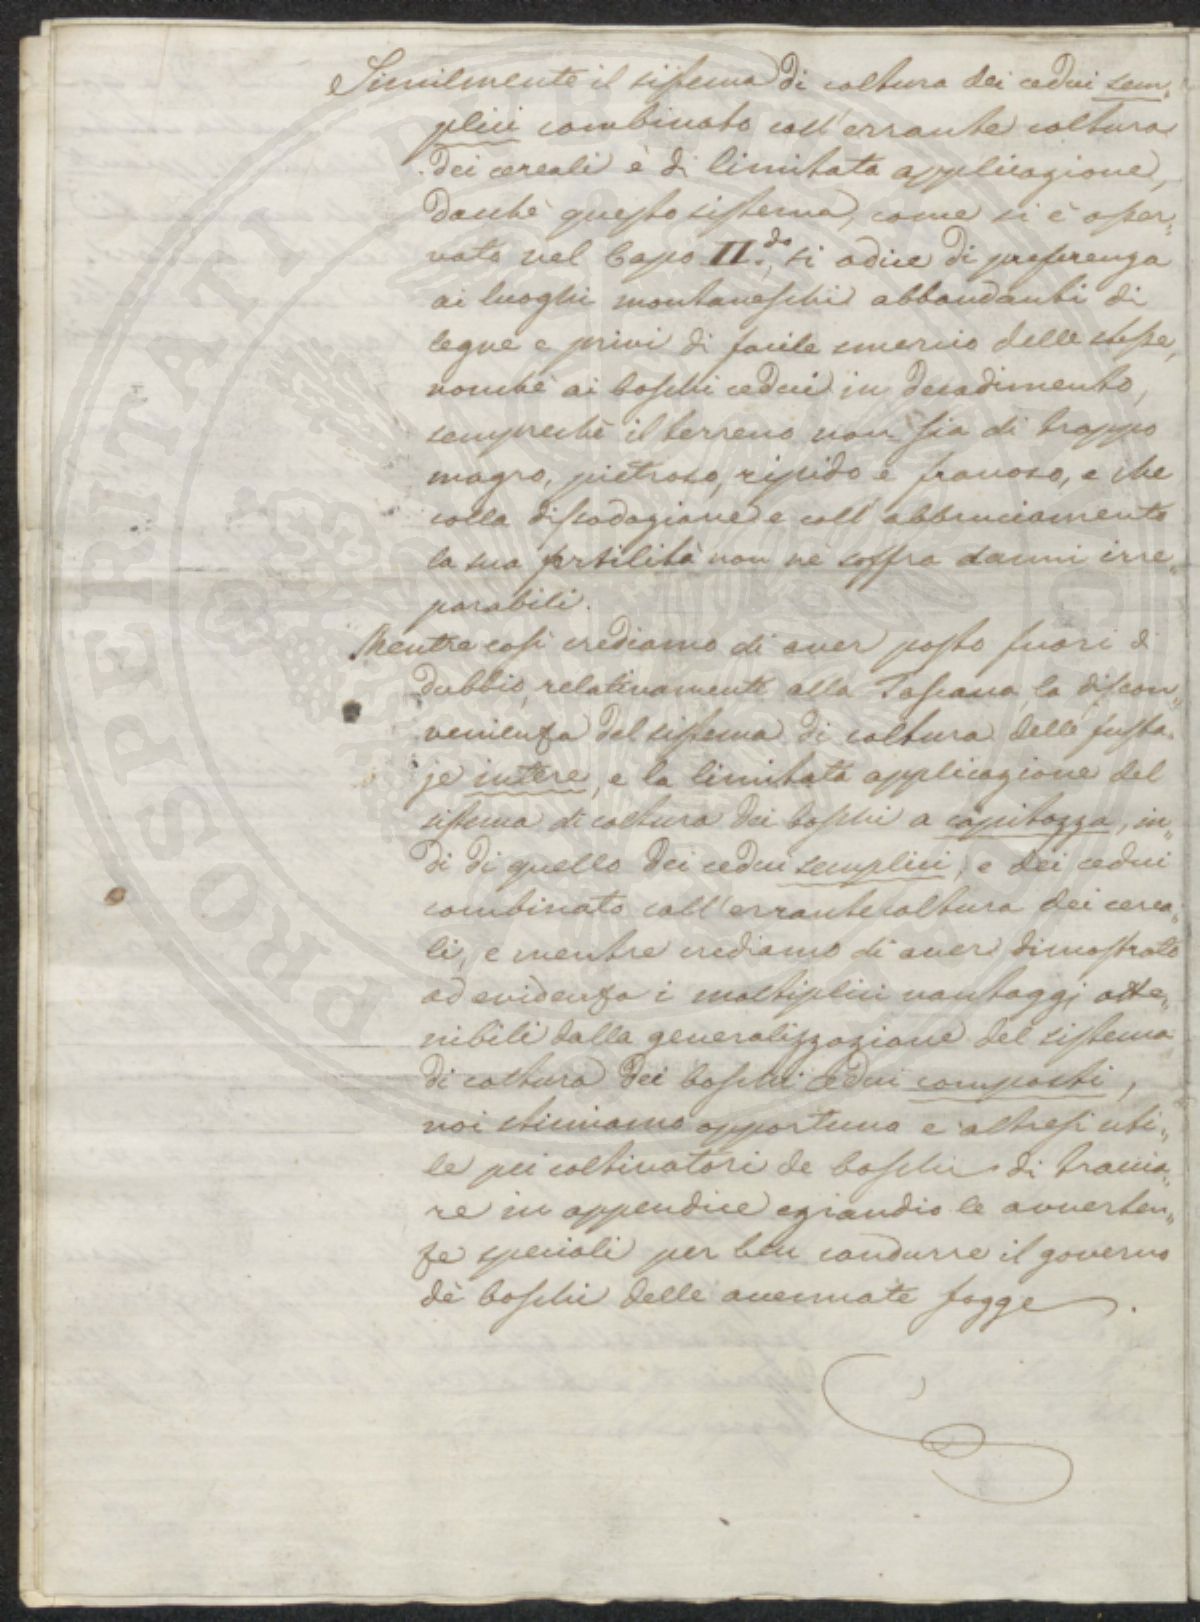 Similmente il sistema di coltura dei cedui sem„
plici combinato coll'errante coltura
dei cereali è di limitata applicazione,
dacchè questo sistema, come si è osser„
vato nel Capo II.do, si adice di preferenza
ai luoghi montaneschi abbondanti di
legne e privi di facile smercio delle stesse,
nonchè ai boschi cedui in decadimento,
semprechè il terreno non sia di troppo
magro, pietroso, ripido e franoso, e che
colla dissodazione e coll'abbruciamento
la sua fertilità non ne soffra danni irre„
parabili.
Mentre così crediamo di aver posto fuori di
dubbio, relativamente alla Toscana, la discon„
venienza del sistema di coltura delle fusta„
je intere, e la limitata applicazione del
sistema di coltura dei boschi a capitozza, in„
di di quello dei cedui semplici, e dei cedui
combinato coll'errante coltura dei cerea„
li, e mentre crediamo di aver dimostrato
ad evidenza i moltiplici vantaggj otte„
nibili dalla generalizzazione del sistema
di coltura dei boschi cedui composti,
noi stimiamo opportuno e altresì uti„
le pei coltivatori de boschi di traccia„
re in appendice eziandio le avverten„
ze speciali per ben condurre il governo
dè boschi delle accennate fogge.
PROSPERITATI PUBLICAE